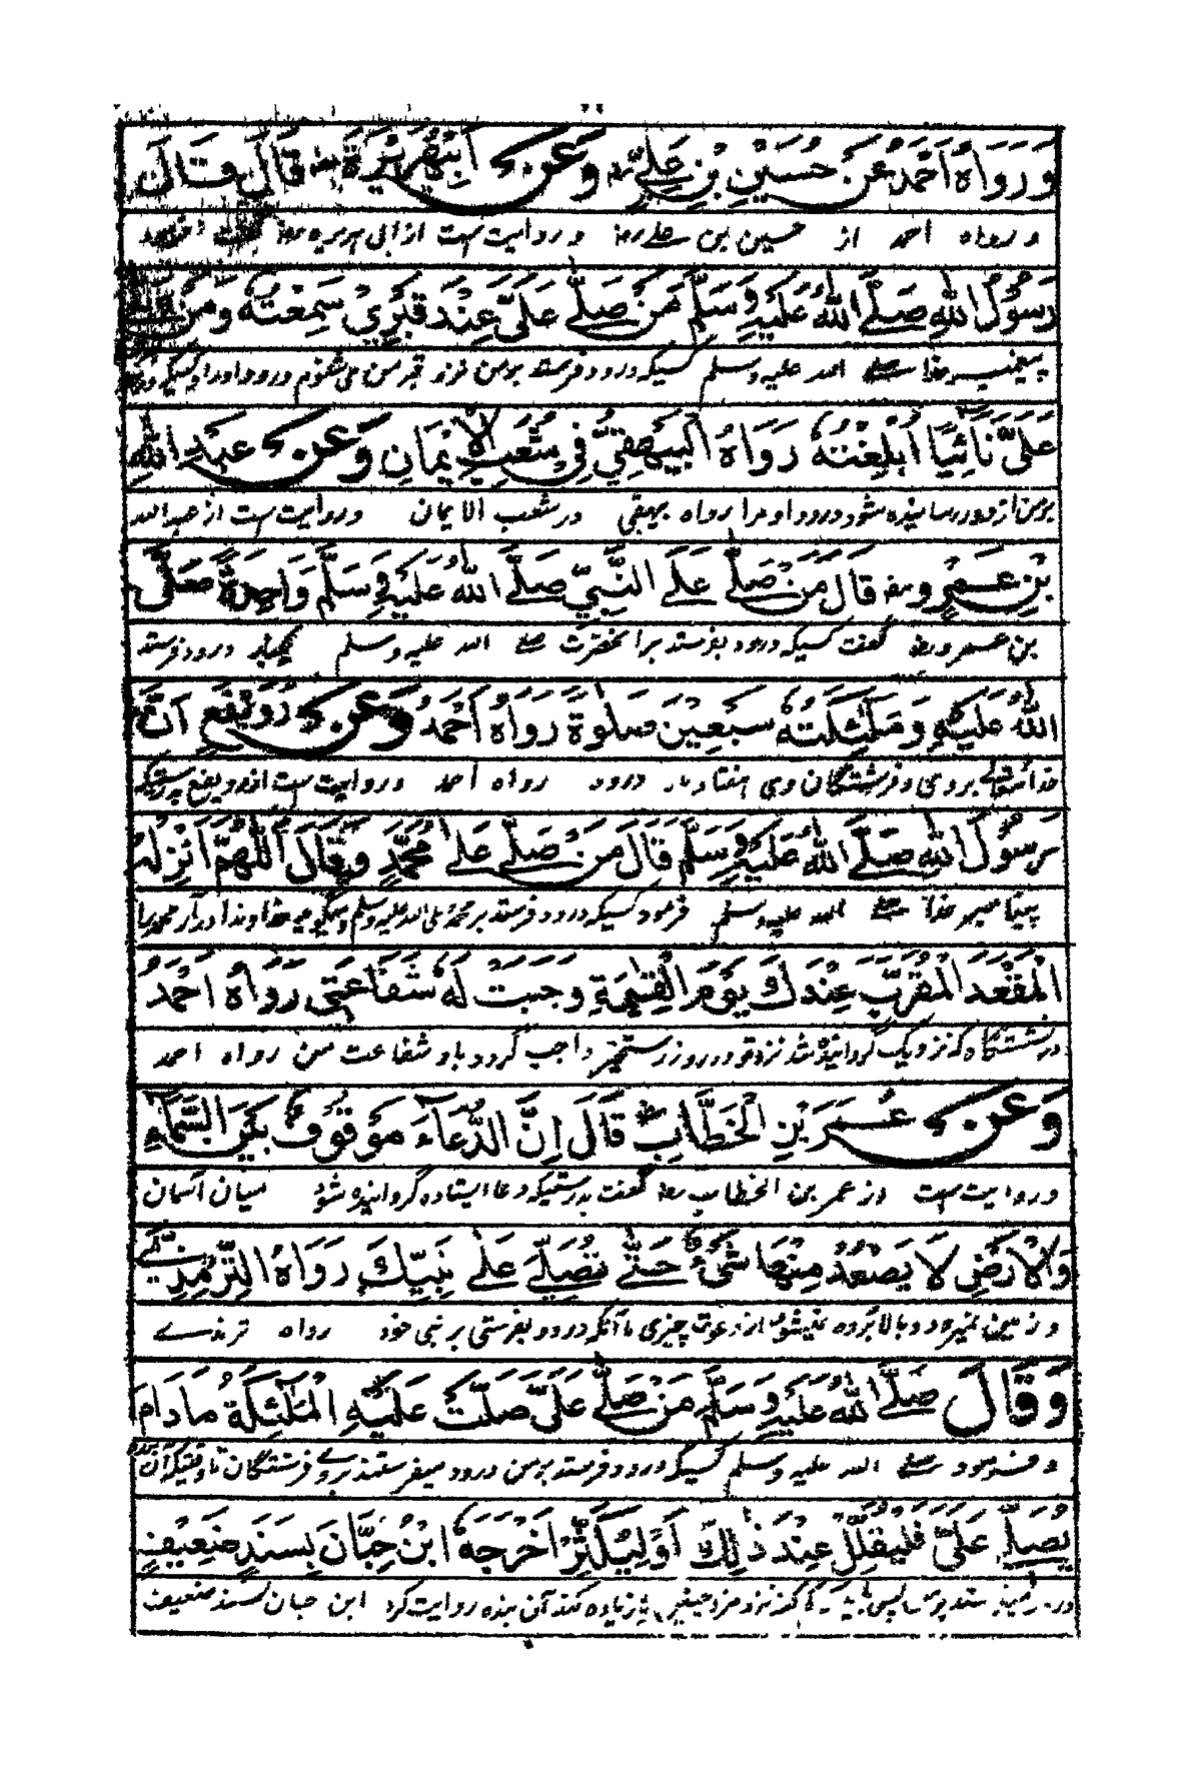 وَرَوَاهُ اَحْمَدُ عَنْ حُسَيْنِ بْنِ عَلِيٍّ رض وَعَنْ اَبِيْ هُرَيْرَةَ رض قَالَ قَالَ
و رواه احمد از حسین بن علی رض و روایت ست از ابی هریره رض
رَسُوْلُ اللهِ صَلَّى اللهُ عَلَيْهِ وَسَلَّمَ مَنْ صَلَّى عَلَيَّ عِنْدَ قَبْرِيْ سَمِعْتُهُ وَمَنْ صَلَّى
پیغمبر خدا صلی الله علیه وسلم کسیکه درود فرستد بر من نزد قبر من می شنوم درود او را و کسیکه درود
عَلَيَّ نَائِيًا اُبْلِغْتُهُ رَوَاهُ الْبَيْهَقِيُّ فِيْ شُعَبِ الْاِيْمَانِ وَعَنْ عَبْدِ اللهِ
بر من از دور رسانیده شود درود او مرا رواه بیهقی در شعب الایمان و روایت ست از عبد الله
بْنِ عَمْرٍو رض قَالَ مَنْ صَلَّى عَلَى النَّبِيِّ صَلَّى اللهُ عَلَيْهِ وَسَلَّمَ وَاحِدَةً صَلَّى
بن عمرو رض گفت کسیکه درود بفرستد بر آنحضرت صلی الله علیه وسلم یکبار درود فرستد
اللهُ عَلَيْهِ وَمَلٰئِكَتُهُ سَبْعِيْنَ صَلٰوةً رَوَاهُ اَحْمَدُ وَعَنْ رُوَيْفِعٍ اَنَّ
خدا تعالی بر وی و فرشتگان وی هفتاد بار درود رواه احمد و روایت ست از رویفع بدرستیکه
رَسُوْلَ اللهِ صَلَّى اللهُ عَلَيْهِ وَسَلَّمَ قَالَ مَنْ صَلَّى عَلٰى مُحَمَّدٍ وَقَالَ اَللّٰهُمَّ اَنْزِلْهُ
پیغامبر خدا صلی الله علیه وسلم فرمود کسیکه درود فرستد بر محمد صلی الله علیه وسلم و بگوید خداوندا در آر محمد را
الْمَقْعَدَ الْمُقَرَّبَ عِنْدَكَ يَوْمَ الْقِيٰمَةِ وَجَبَتْ لَهُ شَفَاعَتِيْ رَوَاهُ اَحْمَدُ
در نشستگاه که نزدیک گردانیده شد نزد تو در روز رستخیز واجب گردد باو شفاعت من رواه احمد
وَعَنْ عُمَرَ بْنِ الْخَطَّابِ رض قَالَ اِنَّ الدُّعَاءَ مَوْقُوْفٌ بَيْنَ السَّمَاءِ
و روایت ست از عمر بن الخطاب رض گفت بدرستیکه دعا ایستاده گردانیده شود میان آسمان
وَالْاَرْضِ لَا يَصْعَدُ مِنْهَا شَيْءٌ حَتّٰى تُصَلِّيَ عَلٰى نَبِيِّكَ رَوَاهُ التِّرْمِذِيُّ
و زمین نمیرود و بالا برده نمیشود از دعوت چیزی تا آنکه درود بفرستی بر نبی خود رواه ترمذی
وَقَالَ صَلَّى اللهُ عَلَيْهِ وَسَلَّمَ مَنْ صَلَّى عَلَيَّ صَلَّتْ عَلَيْهِ الْمَلٰئِكَةُ مَا دَامَ
و فرمود صلی الله علیه وسلم کسیکه درود فرستد بر من درود میفرستند بر وے فرشتگان تا وقتیکه آن
يُصَلِّيْ عَلَيَّ فَلْيُقَلِّلْ عِنْدَ ذٰلِكَ اَوْ لِيُكَثِّرْ اَخْرَجَهُ ابْنُ حِبَّانَ بِسَنَدٍ ضَعِيْفٍ
یا زیاده کند آن بنده روایت کرد ابن حبان بسند ضعیف